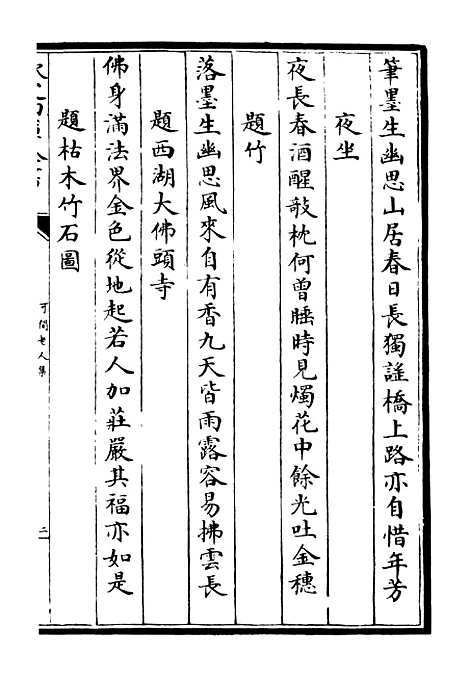 筆墨生幽思山居春日長獨謡橋上路亦自惜年芳
夜坐
夜長春酒醒敧枕何曾睡時見燭花中餘光吐金穗
題竹
落墨生幽思風來自有香九天皆雨露容易拂雲長
題西湖大佛頭寺
佛身滿法界金色從地起若人加莊嚴其福亦如是
題枯木竹石圖
可閒老人集
二